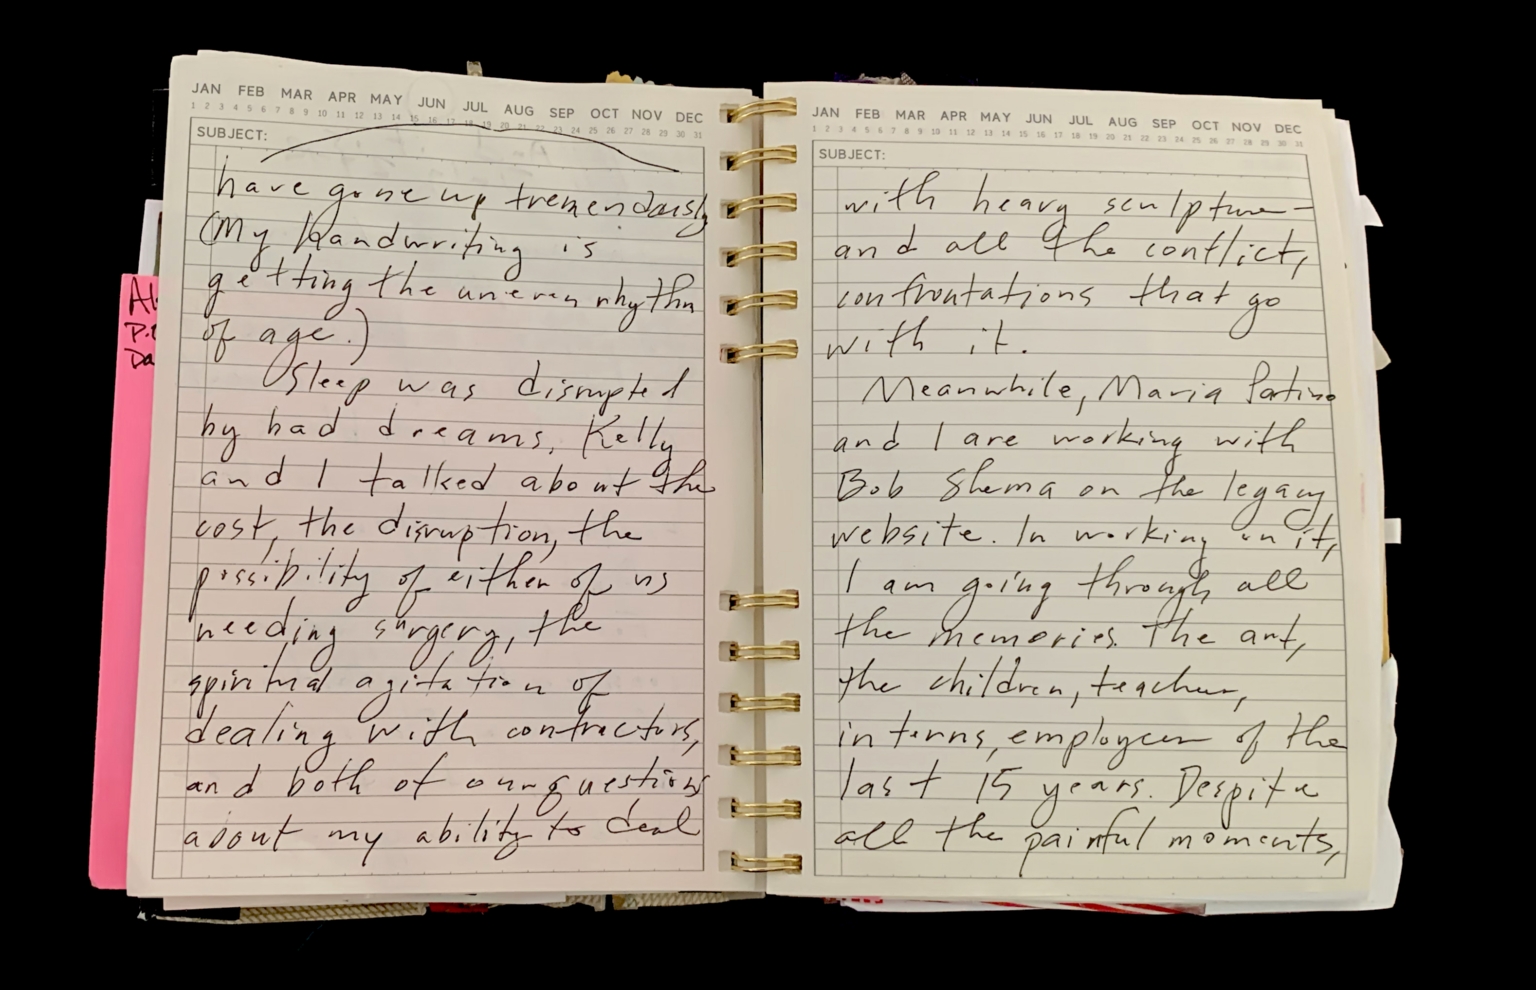 JAN FEB MAR APR MAY JUN JUL AUG SEP OCT NOV DEC
1 2 3 4 5 6 7 8 9 10 11 12 13 14 15 16 17 18 19 20 21 22 23 24 25 26 27 28 29 30 31
SUBJECT:
have gone up tremendously
(My handwriting is
getting the uneven rhythm
of age.)
Sleep was disrupted
by bad dreams, Kelly
and I talked about the
cost, the disruption, the
possibility of either of us
needing surgery, the
spiritual agitation of
dealing with contractors,
and both of our questions
about my ability to deal
JAN FEB MAR APR MAY JUN JUL AUG SEP OCT NOV DEC
1 2 3 4 5 6 7 8 9 10 11 12 13 14 15 16 17 18 19 20 21 22 23 24 25 26 27 28 29 30 31
SUBJECT:
with heavy sculpture—
and all the conflict,
confrontations that go
with it.
Meanwhile, Maria
and I are working with
Bob Shema on the legacy
website. In working on it,
I am going through all
the memories. The art,
the children, teacher,
interns, employees of the
last 15 years. Despite
all the painful moments,